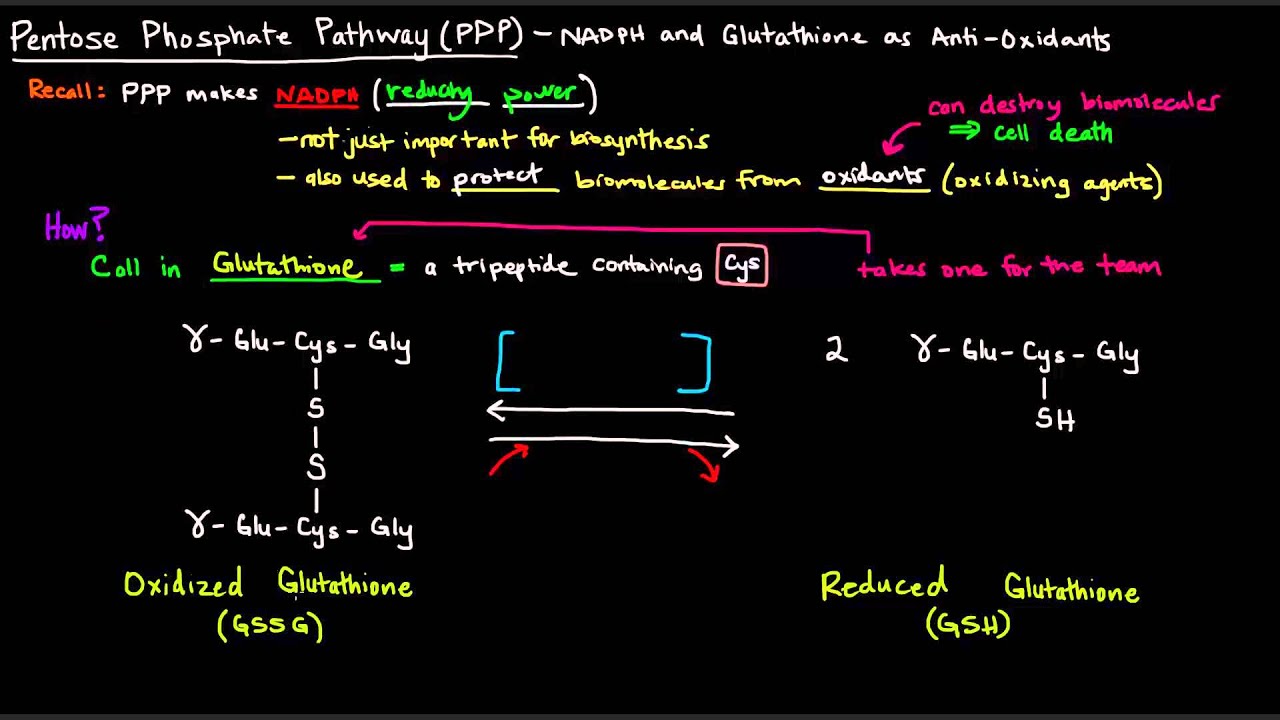 Pentose Phosphate Pathway (PDP) - NADPH and Glutathione as Anti-Oxidants
Recall: PPP makes NADPH (reducing power)
can destroy biomolecules
⇒ cell death
- not just important for biosynthesis
- also used to protect biomolecules from oxidants (oxidizing agents)
How?
Call in Glutathione = a tripeptide containing Cys
takes one for the team
γ- Glu - Cys - Gly
S
S
γ- Glu - Cys - Gly
Oxidized Glutathione
(GSSG)
[ ]
2 γ- Glu - Cys - Gly
SH
Reduced Glutathione
(GSH)